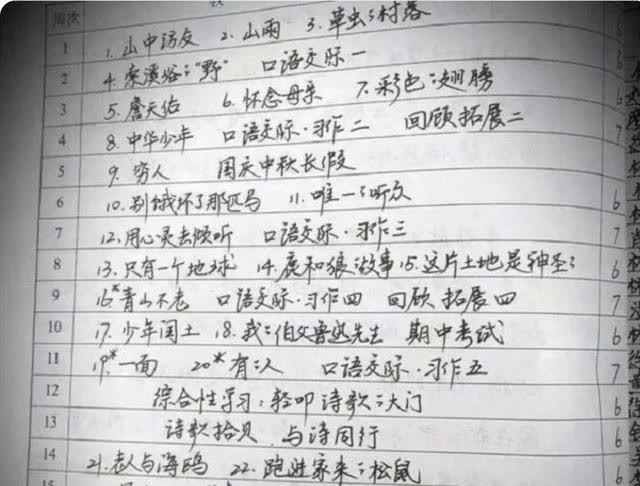 周次
1 1. 山中访友 2. 山雨 3. 草虫的村落 6
2 4. 索溪峪的"野" 口语交际一 6
3 5. 詹天佑 6. 怀念母亲 7. 彩色的翅膀 6
4 8. 中华少年 口语交际·习作二 回顾拓展二 7
5 9. 穷人 国庆中秋长假
6 10. 别饿坏了那匹马 11. 唯一的听众 6
7 12. 用心灵去倾听 口语交际·习作三 7
8 13. 只有一个地球 14. 鹿和狼的故事 15. 这片土地是神圣的 6
9 16*青山不老 口语交际·习作四 回顾拓展四 7
10 17. 少年闰土 18. 我的伯父鲁迅先生 期中考试 6
11 19*.一面 20*有的人 口语交际·习作五 7
12 综合性学习:轻叩诗歌的大门 6
13 诗歌拾贝 与诗同行 6
14 21. 老人与海鸥 22. 跑进家来的松鼠 6
15